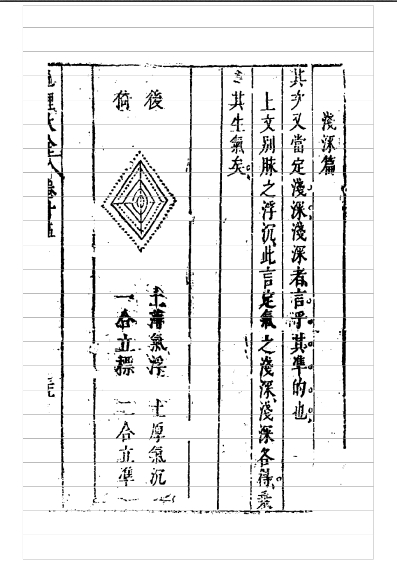 淺深篇
其次又當定淺深淺深者言乎其準的也
上文別脉之浮沉此言定氣之淺深淺深各得乘
其生氣矣
後
倚
土薄氣浮　土厚氣沉
一合立標　二合立準
地理大全　卷十五